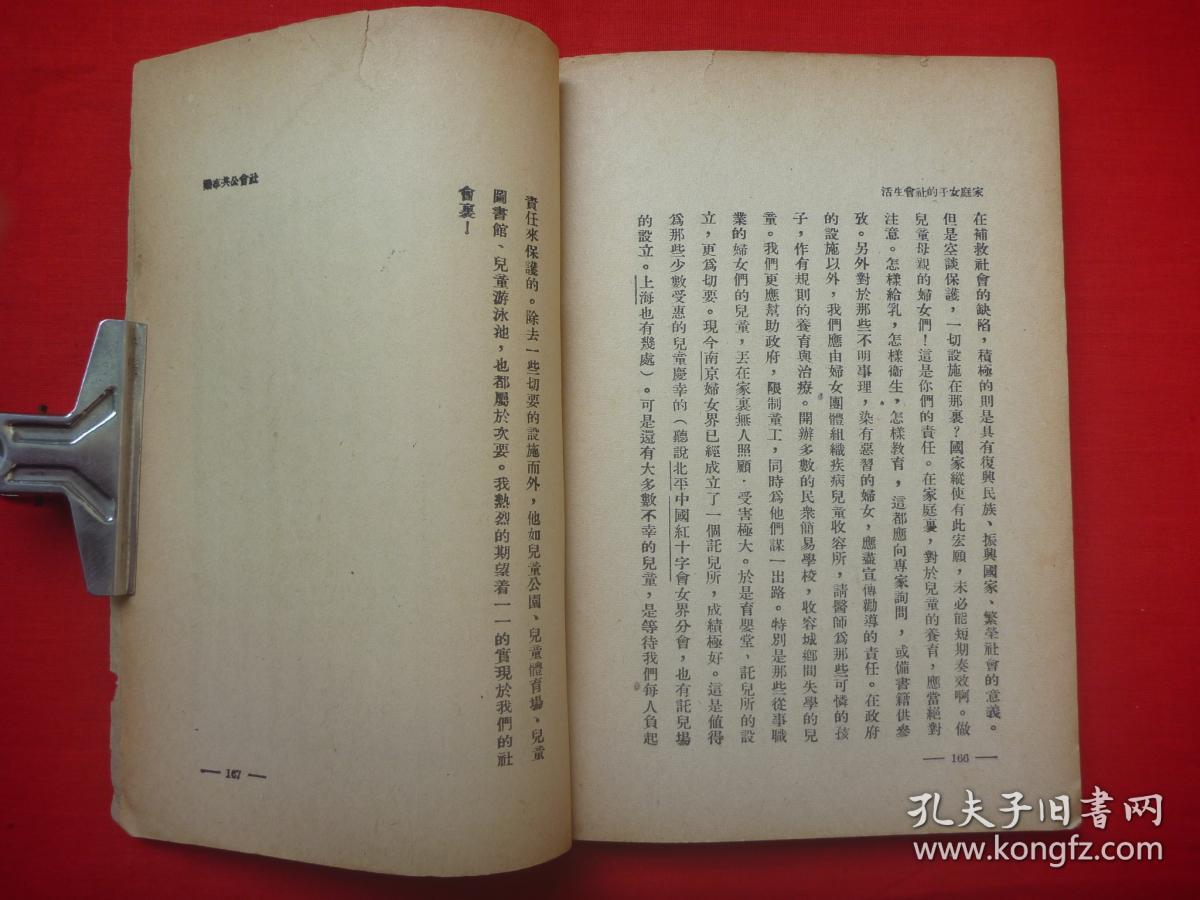 活生會社的子女庭家
在補救社會的缺陷，積極的則是具有復興民族、振興國家、繁榮社會的意義。
但是空談保護，一切設施在那裏？國家縱使有此宏願，未必能短期奏效啊。做
兒童母親的婦女們！這是你們的責任。在家庭裏，對於兒童的養育，應當絕對
注意。怎樣給乳，怎樣衞生，怎樣教育，這都應向專家詢問，或備書籍供參
致。另外對於那些不明事理，染有惡習的婦女，應盡宣傳勸導的責任。在政府
的設施以外，我們應由婦女團體組織疾病兒童收容所，請醫師爲那些可憐的孩
子，作有規則的養育與治療。開辦多數的民衆簡易學校，收容城鄉間失學的兒
童。我們更應幫助政府，限制童工，同時爲他們謀一出路。特別是那些從事職
業的婦女們的兒童，丟在家裏無人照顧．受害極大。於是育嬰堂，託兒所的設
立，更爲切要。現今南京婦女界已經成立了一個託兒所，成績極好。這是值得
爲那些少數受惠的兒童慶幸的（聽說北平中國紅十字會女界分會，也有託兒場
的設立。上海也有幾處）。可是還有大多數不幸的兒童，是等待我們每人負起
— 166 —
社會公共事業
責任來保護的。除去一些切要的設施而外，他如兒童公園、兒童體育場、兒童
圖書館、兒童游泳池，也都屬於次要。我熱烈的期望着一一的實現於我們的社
會裏！
— 167 —
孔夫子旧书网
www.kongfz.com